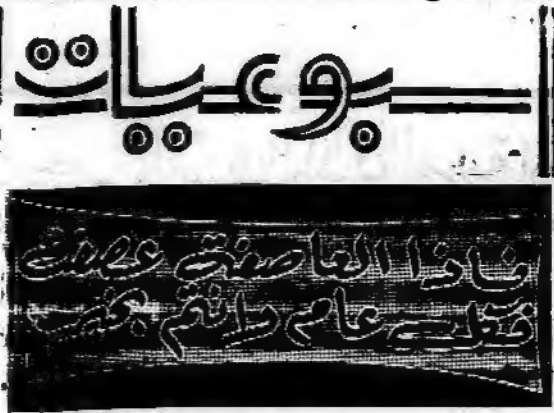 ســبوعيات
فاذا العاصفة عصفت
فكل عام وانتم بخير